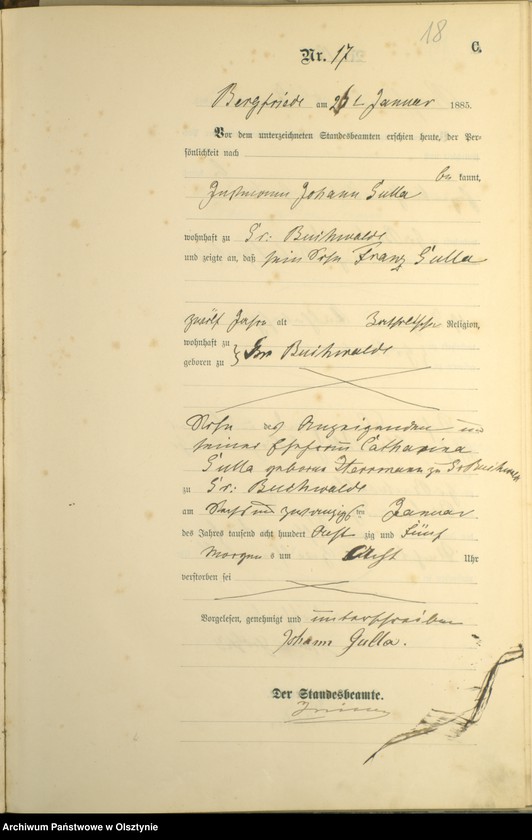 18
C.
Nr. 17
Bergfriede am 26t Januar 1885.
Vor dem unterzeichneten Standesbeamten erschien heute, der Per-
sönlichkeit nach
be kannt,
Instmann Johann Gulla
wohnhaft zu Gr: Buchwalde
und zeigte an, daß sein Sohn Franz Gulla
zwölf Jahre alt katholischer Religion,
wohnhaft zu
geboren zu Gr Buchwalde
Sohn des Anzeigenden und
seiner Ehefrau Catharina
Gulla geborene Herrmann zu Gr Buchwalde
zu Gr: Buchwalde
am sechs und zwanzigsten Januar
des Jahres tausend acht hundert acht zig und fünf
Morgen s um acht Uhr
verstorben sei
Vorgelesen, genehmigt und unterschrieben
Johann Gulla.
Der Standesbeamte.
Archiwum Państwowe w Olsztynie